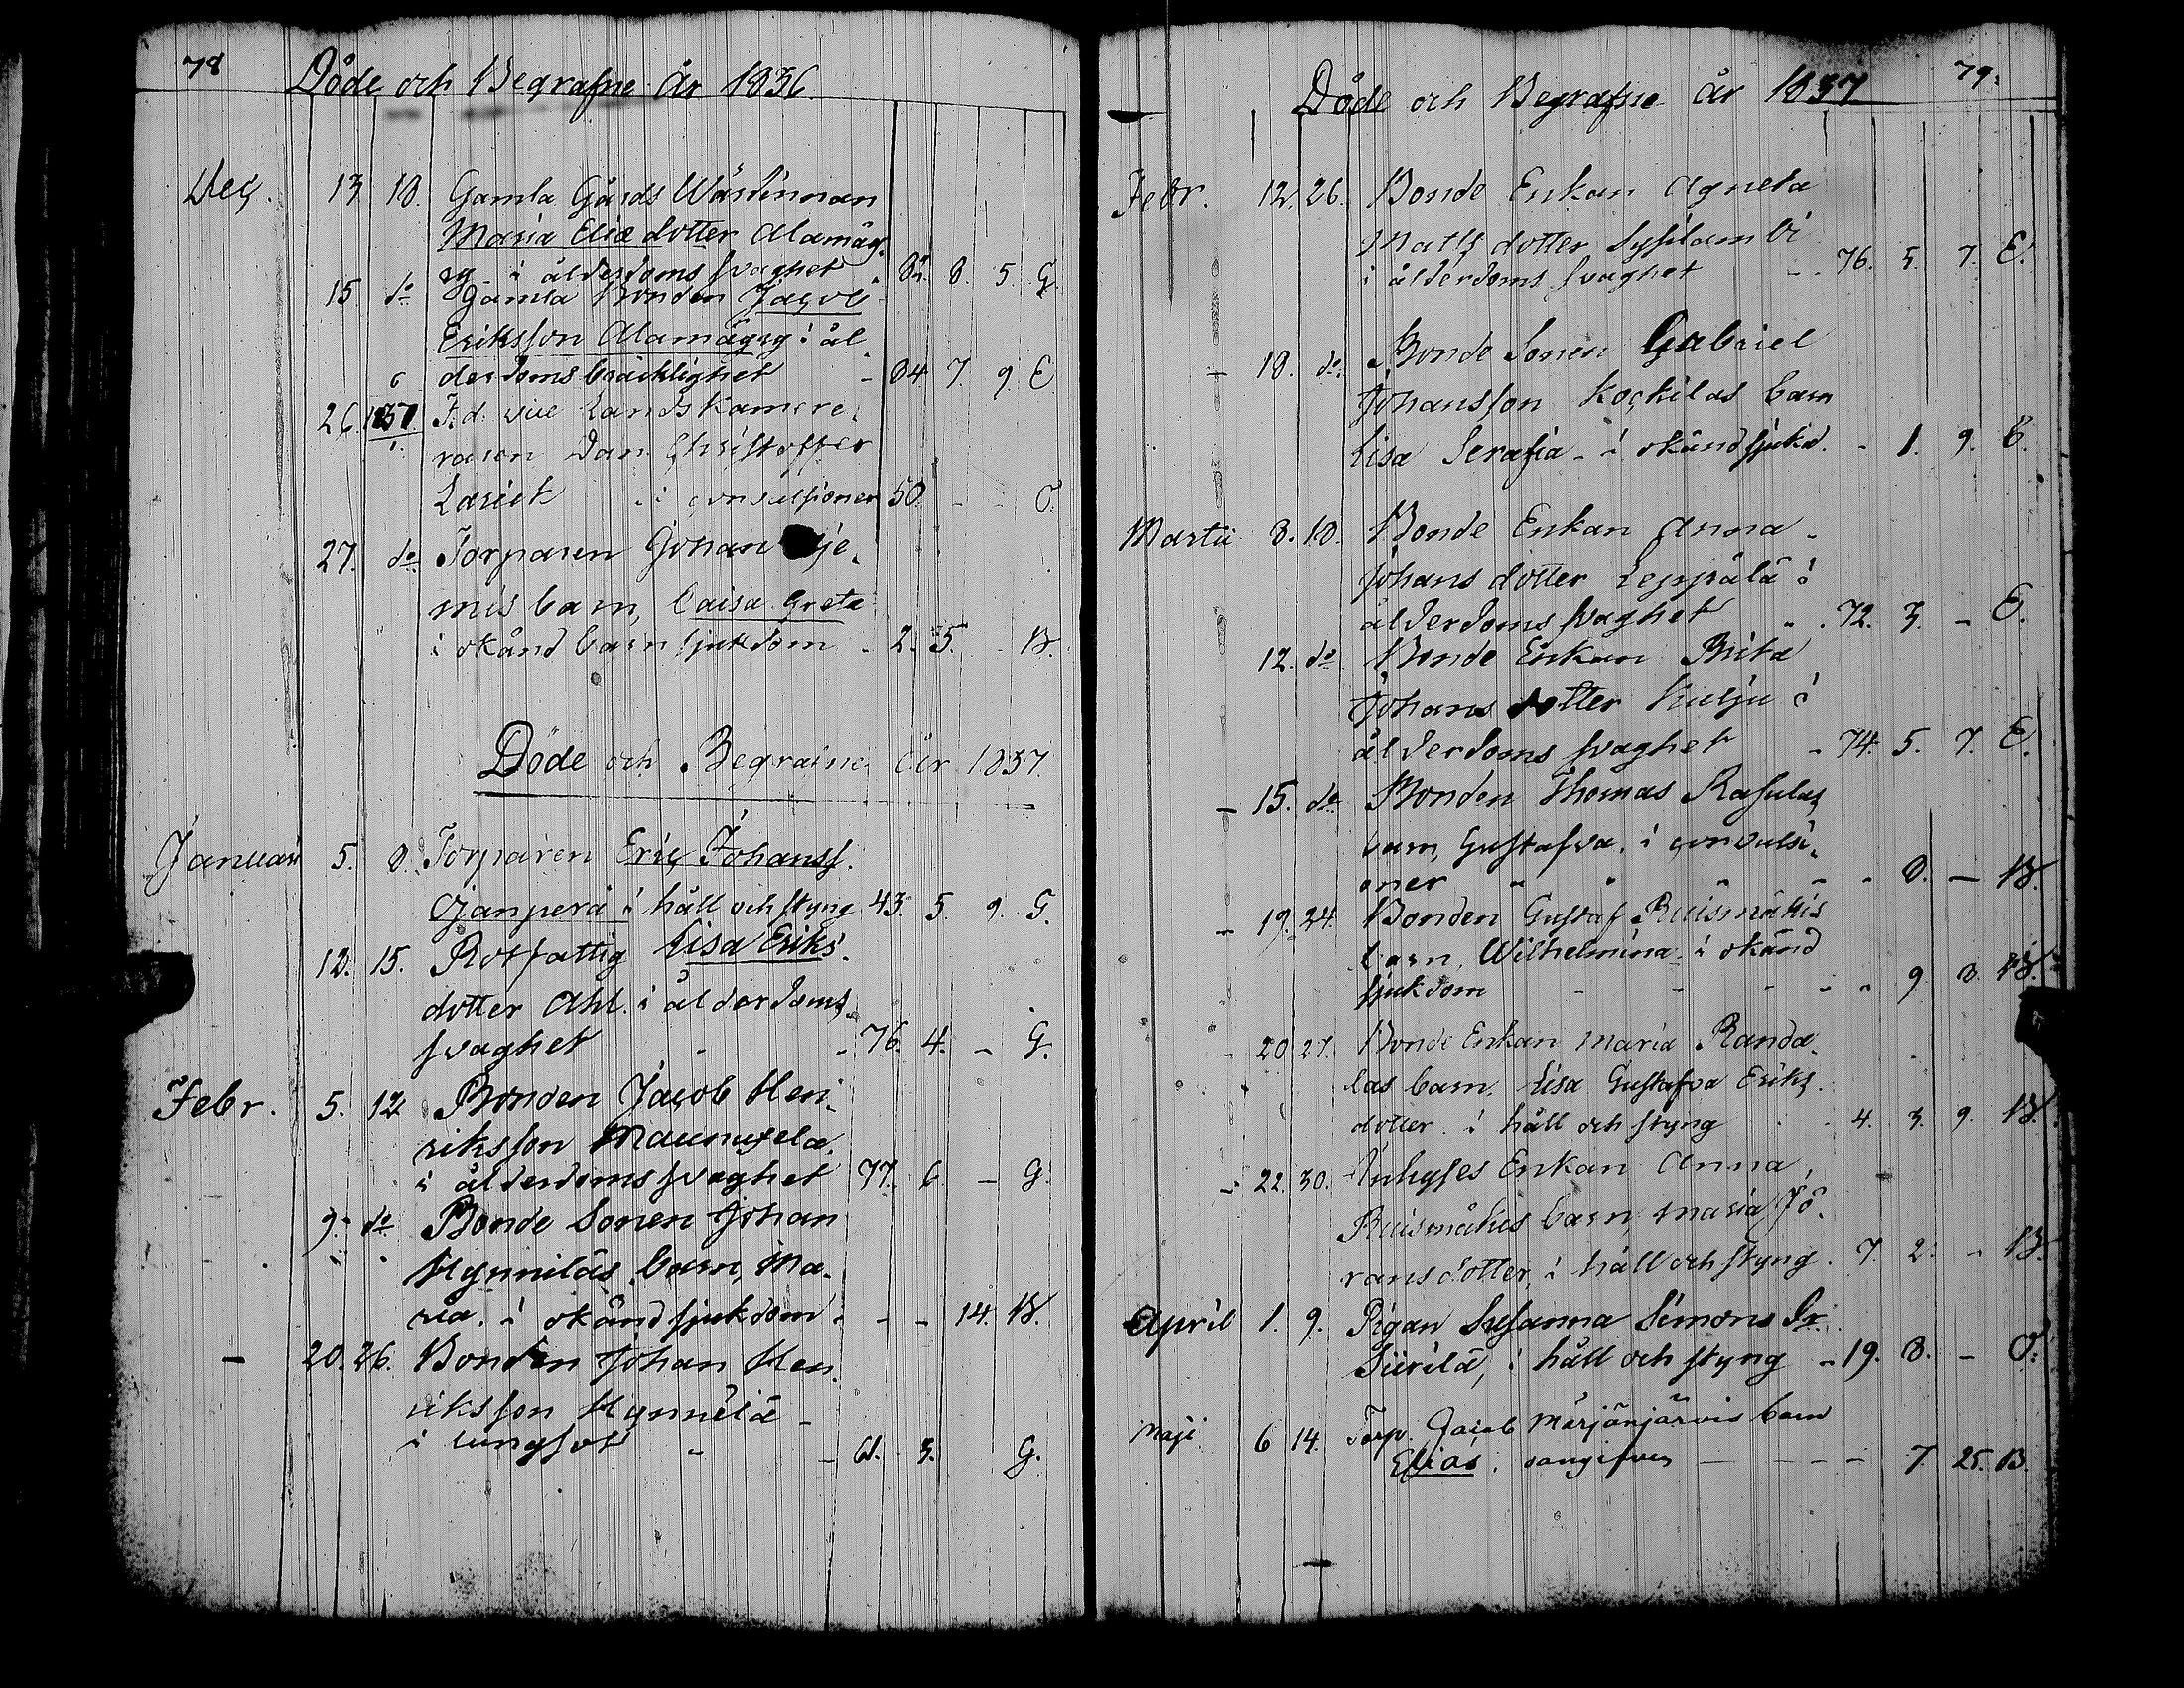 78
Döde och Begrafne År 1836.
Dec. 13 18. Gamla Gårds Wärdinnan
Maria Eliæ dotter Alamäg-
rg i ålderdoms svaghet 8. 5. G.
15. do Gamla Bonden Jacob
Eriksson Alamägrg i ål
derdoms bräcklighet - 84 7. 9. E
26. 1837. F.d. vice Landskamere
1. raren Dan. Christoffer
Lariek i convulsioner 50. - - O.
27. do Torparen Johan
mis barn, Caisa Greta
i okänd barnsjukdom - 2. 5. - B.
Döde och Begrafne År 1837.
Januari 5. 8. Torparen Eric Johanss.
Ojanperä i håll och styng 43. 5. 9. G.
12. 15. Rotfattig Lisa Eriks-
dotter Ahl. i ålderdoms
svaghet - - 76. 4. - G.
Febr. 5. 12 Bonden Jacob Hen-
riksson Maunusela
i ålderdoms svaghet 77. 6 - G
9. do Bonde Sonen Johan
Hynniläs barn, Ma-
ria. i okänd sjukdom - - - 14. B.
- 20. 26. Bonden Johan Hen-
riksson Hynnilä -
i lungsot - - 61. 3. G.
79.
Döde och Begrafne år 1837
Febr. 12. 26. Bonde Enkan Agneta
Mats dotter Sysilambi
i ålderdoms svaghet - - 76. 5. 7. E.
- 18. do. Bonde Sonen Gabriel
Johansson Kockilas barn
Lisa Serafia - i okänd sjukd. - 1. 9. B.
Martii 8. 18. Bonde Enkan Anna
Johans dotter Leppälä i
ålderdoms svaghet - . 72. 3. - E.
12. do Bonde Enkan Brita
Johans dotter Kulju i
ålderdoms svaghet - 74. 5. 7. E.
- 15. do Bonden Thomas Rasulas
barn, Gustafva. i convulsi-
oner - - - - - 8. - B.
- 19. 24. Bonden Gustaf Ruismäkis
barn, Wilhelmina. i okänd
sjukdom - - - - - 9 8. B.
- 20 27. Bonde Enkan Maria Randa-
las barn. Lisa Gustafva Eriks
dotter. i håll och styng - 4. 3. 9. B.
- 22. 30. Inhyses Enkan Anna
Ruismäkis barn, Maria Jö-
rans dotter, i håll och styng. 7. 2. - B.
April 1. 9. Pigan Susanna Simons Dr
Siirilä, i håll och styng - 19. 8. - O.
Maji 6 14. Torp. Jacob Märjänjärvis barn
Elias. - - - - 7 25. B.